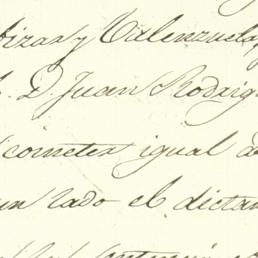 y Valenzuela
D. Juan Rodrig
cometer igual d
un lado el dictam